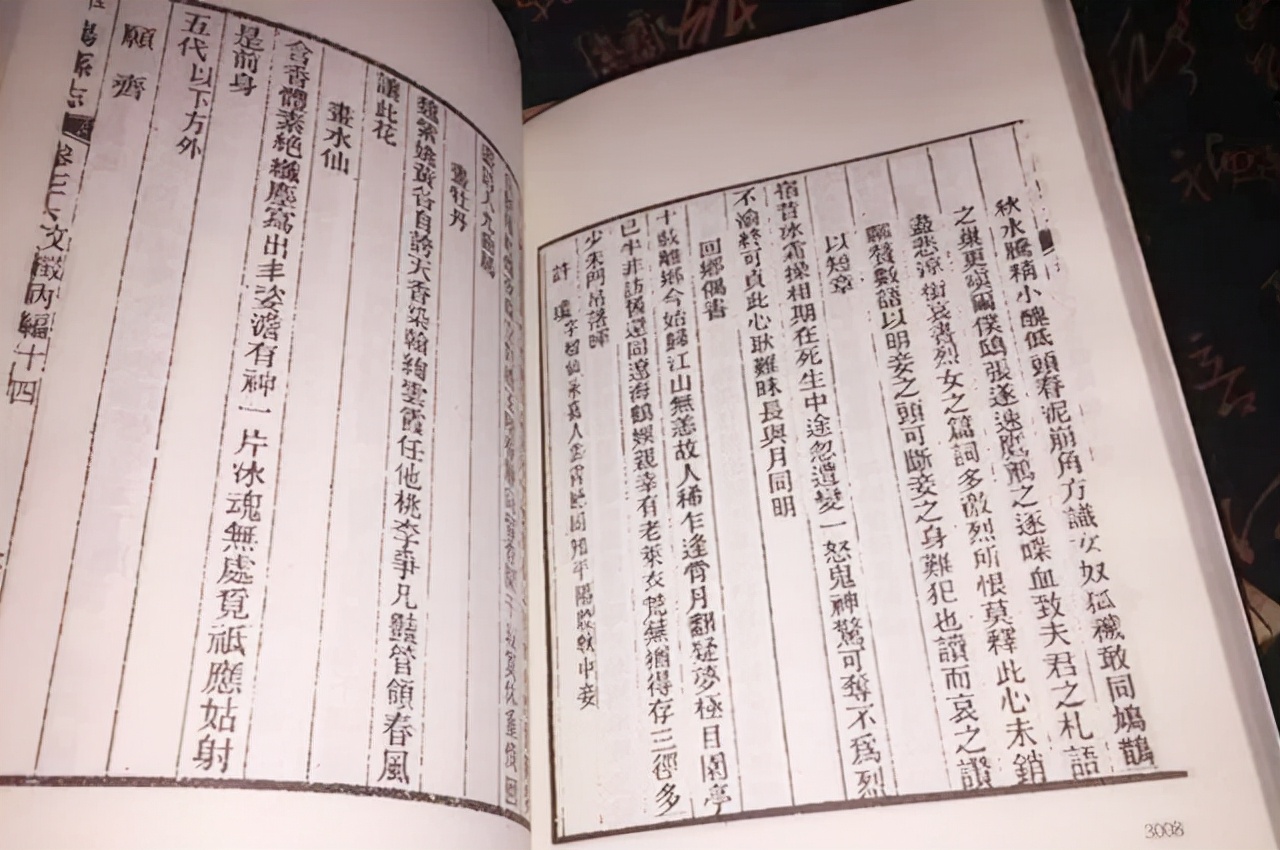 秋水騰精小醜低頭春泥崩角方識女奴狐穢敢同鳩鵲
之巢更嗔爾僕鴟張遂速鷹鸇之逐喋血致夫君之札語
盡悲涼銜哀賡烈女之篇詞多激烈所恨莫釋此心未銷
數語以明妾之頭可斷妾之身難犯也讀而哀之讚
以短章
宿昔冰霜操相期在死生中途忽遭變一怒鬼神驚可奪不爲烈
不渝終可貞此心耿難昧長與月同明
回鄉偶書
十載離鄉今始歸江山無恙故人稀乍逢霄月翻疑夢極目園亭
已半非訪舊還同遼海鶴娛親幸有老萊衣荒蕪猶得存三徑多
少朱門吊落暉
許
畫牡丹
魏紫姚黃各自誇天香染翰絢雲霞任他桃李爭凡豔管領春風
讓此花
畫水仙
含香體素絕纖塵寫出丰姿澹有神一片冰魂無處覓祇應姑射
是前身
五代以下方外
願濟
文徵內編十四
3008